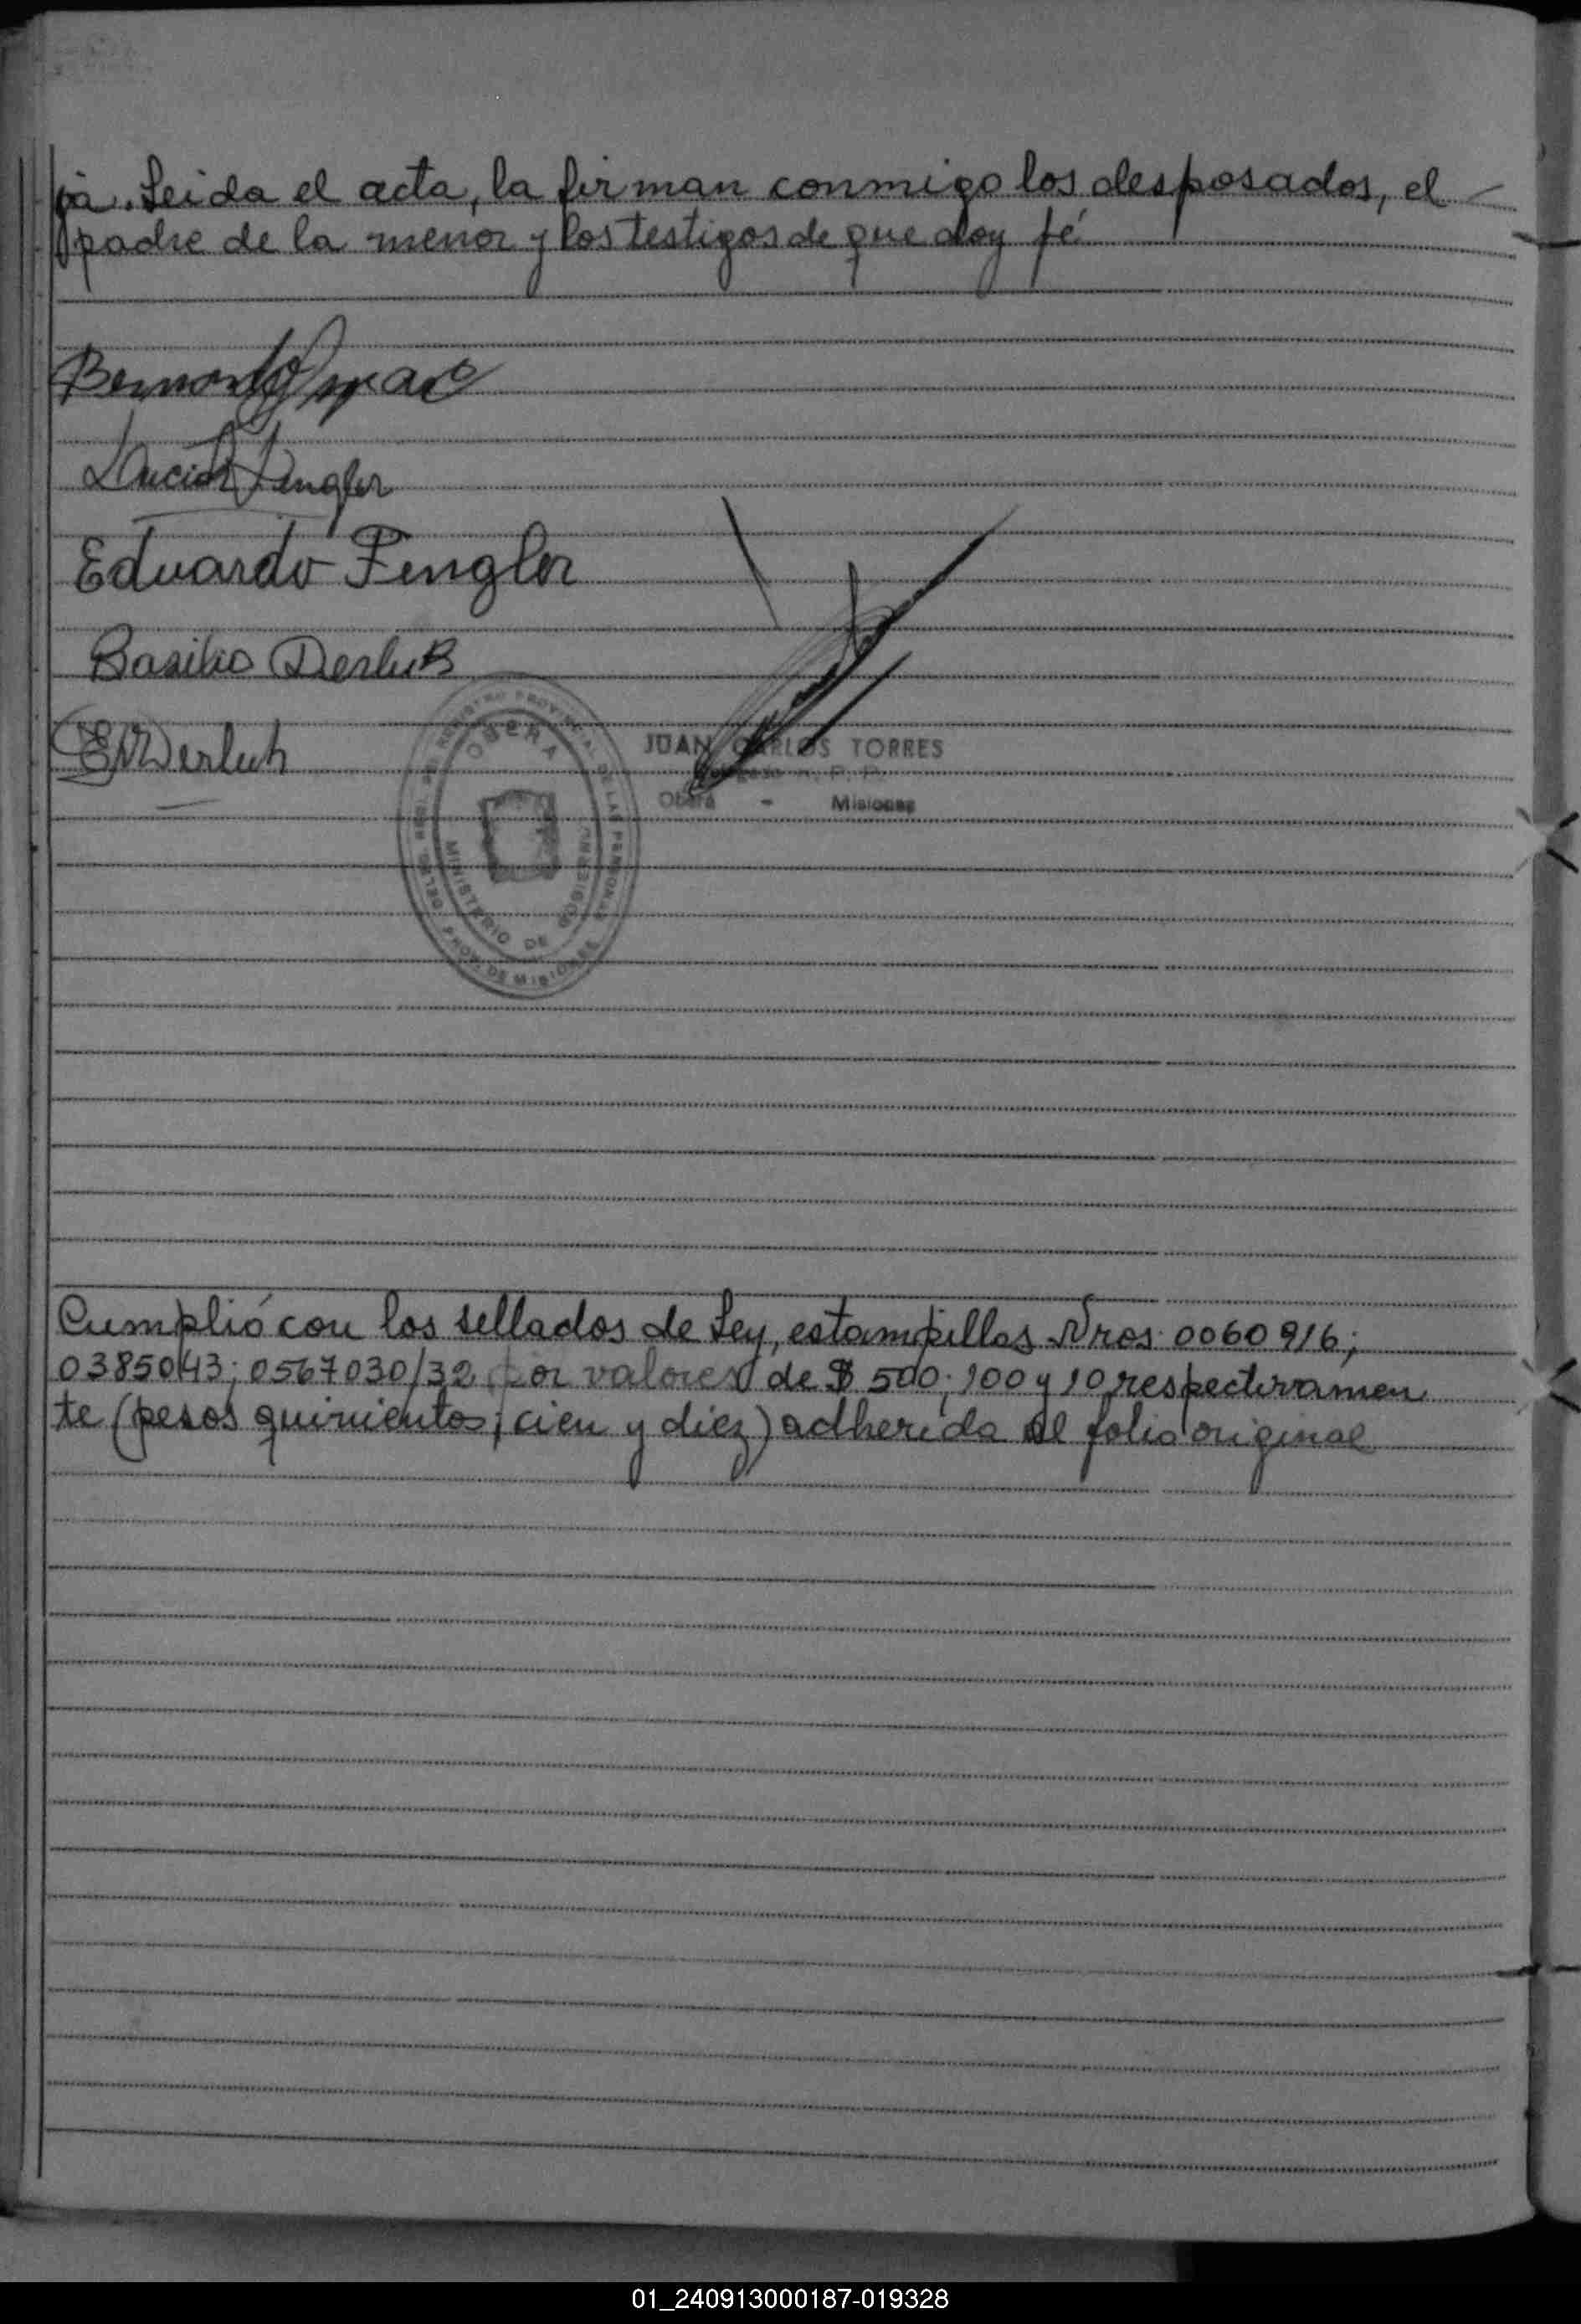 ja. Leida el acta, la firman conmigo los desposados, el
padre de la menor y los testigos de que doy fé
Lucia Fengler
Eduardo Fengler
Basilio Derluk
E Derluk
REGISTRO PROVINCIAL DE LAS PERSONAS
OBERA
MINISTERIO DE
PROV. DE MISIONES
JUAN CARLOS TORRES
Oberá - Misiones
Cumplió con los sellados de Ley, estampillas Nros. 0060916;
0385043; 0567030/32 por valores de $ 500; 100 y 10 respectivamen
te (pesos quinientos; cien y diez) adherida al folio original
01_240913000187-019328